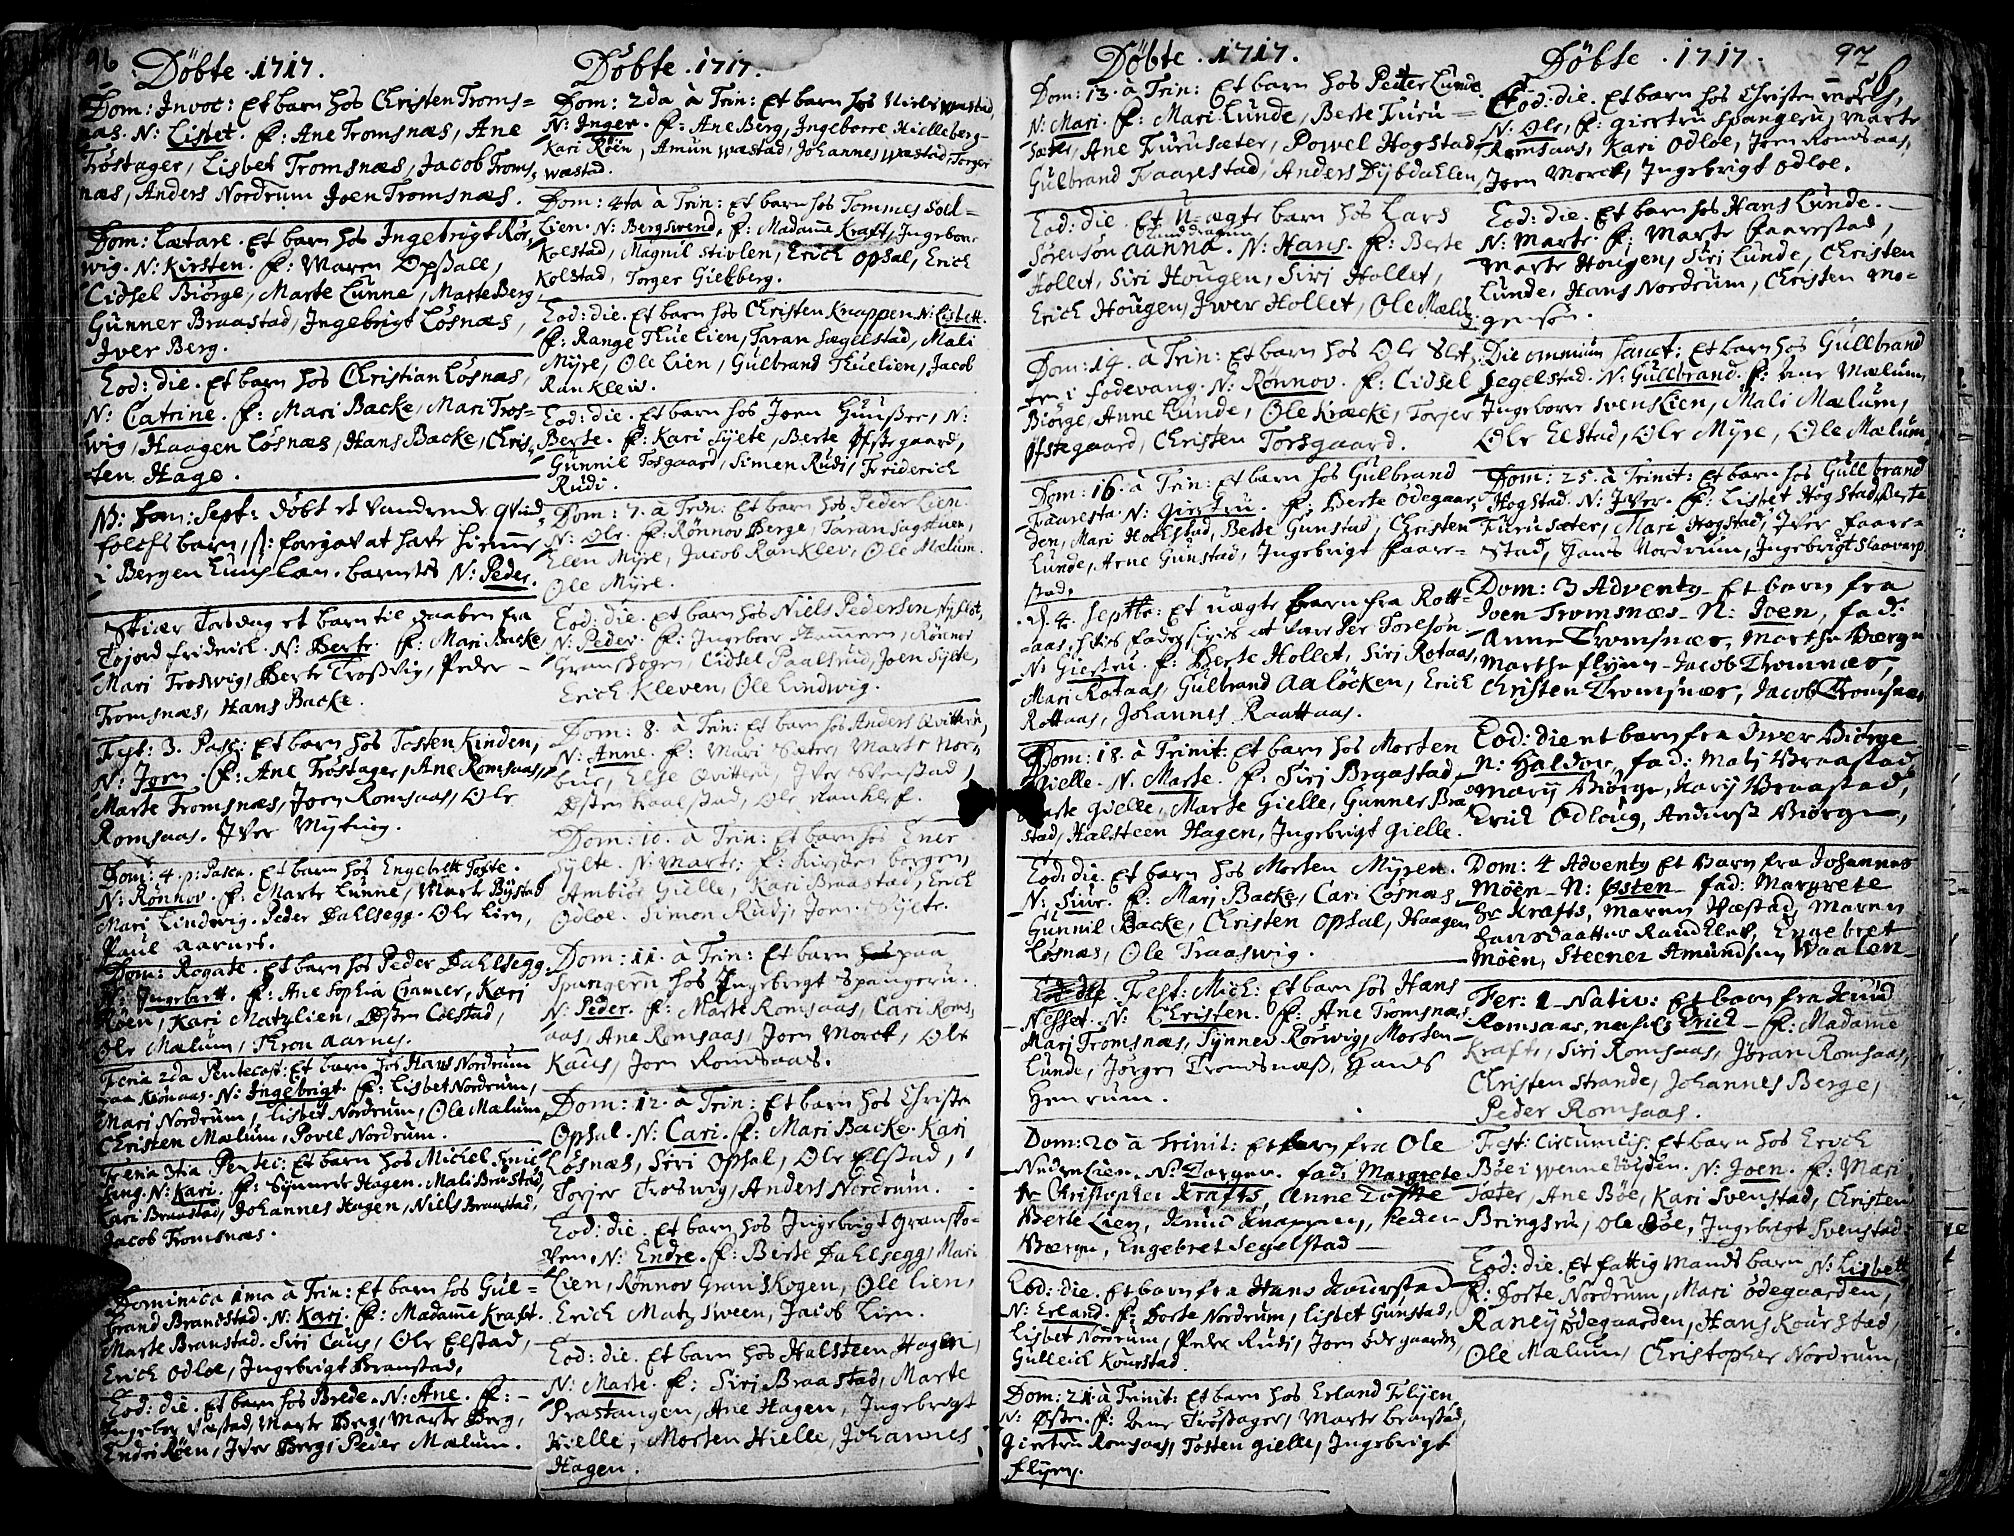 96
Döbte. 1717.
Dom: Invoc: Et barn hos Christen Troms=
nas. N: Lisbet. f: Ane Tromsnæs, Ane
Tröstager, Lisbet Tromsnæs, Jacob Troms,
næs, Anders Nordrum Joen Tromsnæs.
Dom: Lætare. Et barn hos Ingebrigt Rör,
wig. N: Kirsten. f: Maren Opsall,
Cidsel Biörge, Marte Lunne, Marte Berg
Gunner Braastad, Ingebrigt Lösnæs,
Iver Berg.
Eod: die. Et barn hos Christian Lösnæs,
N: Catrine. f: Mari Backe, Mari Tros=
wig, Haagen Lösnæs, Hans Backe, Chris,
ten Hage.
NB: Dom: Sept: döbt et vandrende qvind,
folchs barn, forgav at have hiemme
i Bergenhuus læn. barnets N: Peder.
Skiær Torsdag et barn til daaben fra
Tojord Friderich. N: Berte. f: Mari Backe
Mari Troswig, Berte Troswig, Peder
Tromsnæs, Hans Backe.
Fest: 3. Pasc: Et barn hos Tosten Kinden,
N: Jorn. f: Ane Tröstager, Ane Romsaas,
Marte Tromsnæs, Jorn Romsaas, Ole
Romsaas. Iver Myting.
Dom: 4. p: Pasca. Et barn hos Engebrett Tofte.
N: Rönnov. f: Marte Lunne, Marte Bystad
Mari Lindwig. Peder Dahlsegg. Ole Lien,
Paul Aarnes.
Dom: Rogate. Et barn hos Peder Dahlsegg
N: Ingebrett. f: Ane Sophia Cramer, Kari
Röen, Kari Matzlien, Østen Colstad,
Ole Mælum, Thron Aarnes.
Feria 2da Pentecost: Et barn hos Hans Nordrum
N: Ingebrigt. f: Lisbet Nordrum,
Mari Nordrum, Lisbet Nordrum, Ole Mælum,
Christen Mælum, Povel Nordrum.
Feria 3tia Pentec: Et barn hos Michel
N: Kari. f: Synneve Hagen. Mali Braastad,
Kari Braastad, Johannes Hagen, Niels Braastad,
Jacob Tromsnæs.
Dominica 1ma à Trin: Et barn hos Gul=
brand Branstad. N: Kari. f: Madame Kraft.
Marte Branstad. Siri Caus, Ole Elstad,
Erich Odloe, Ingebrigt Branstad,
Eod: die. Et barn hos Brede. N: Ane. f: -
Ingebor Væstad, Marte Berg, Marte Berg,
Endre Röen, Iver Berg, Peder Mælum.
Döbte. 1717.
Dom: 2da à Trin: Et barn hos Niels Wæstad
N: Inger. f: Ane Berg, Ingeborre Hielleberg-
Kari Röen, Amun Wæstad, Johannes Wæstad, Torger
Wæstad.
Dom: 4ta à Trin: Et barn hos Tommes Soel=
lien. N: Bergswend. f: Madame Kraft, Ingeborr
Kolstad, Magnil Stivlen, Erich Opsal, Erich
Kolstad, Torger Gielberg.
Eod: die. Et barn hos Christen Knappen N: Lisbett.
f: Range Thuelien, Taran Sægelstad, Mali
Myre, Ole Lien, Gulbrand Thuelien, Jacob
Ranklew.
Eod: die. Et barn hos Jorn Huusser, N:
Berte. f: Kari Sylte, Berte Öfstegaard,
Gunnil Tosgaard, Simen Rudi, Friderich
Rudi.
Dom: 7. à Trin: Et barn hos Peder Lien
N: Ole. f: Rönnov Berge, Taran Sagstuen,
Elen Myre, Jacob Ranklev, Ole Mælum.
Ole Myre.
Eod: die. Et barn hos Niels Pedersön Nyslot,
N: Peder. f: Ingeborr Hammern, Rönnov
Granskogen, Cidsel Paalsrud, Joen Sylte,
Erich Kleven, Ole Lindwig.
Dom: 8. à Trin: Et barn hos Anders Qvittern,
N: Anne. f: Mari Sæter, Marte Nor,
bue, Else Qvittern, Iver Svenstad,
Østen Kaalstad, Ole Ranklef.
Dom: 10. à Trin: Et barn hos Ener
Sylte. N: Marte: f: Kirsten Borgen,
Ambiör Gielle, Kari Braastad, Erich
Odloe. Simon Rudj, Jorn Sylte.
Dom: 11. à Trin: Et barn paa
Spangeru hos Ingebrigt Spangeru.
N: Peder. f: Marte Romsaas, Cari Roms,
aas, Ane Romsaas, Jorn Morck, Ole
Kaus, Jorn Romsaas.
Dom: 12. à Trin: Et barn hos Christen
Opsal. N: Cari. f: Mari Backe. Kari
Lösnæs, Siri Opsal, Ole Elstad,
Torjer Troswig, Anders Nordrum.
Eod: die. Et barn hos Ingebrigt Gransko=
ven. N: Endre. f: Berte Dahlsegg, Mari
Lien, Rönnov Granskogen, Ole Lien,
Erich Matz Sween, Jacob Lien.
Eod: die. Et barn hos Halsteen Hagen,
N: Marte. f: Siri Braastad, Marte
Præstangen, Ane Hagen, Ingebrigt
Hielle, Morten Hielle, Johannes
Hagen.
Döbte. 1717.
Dom: 13. à Trin: Et barn hos Peder Lunde
N: Mari. f: Mari Lunde, Berte Furu=
sæter, Ane Furusæter, Powel Hogstad,
Gulbrand Faarestad, Anders Dybdahlen,
Eod: die. Et U-ægte barn hos Lars
Sörensön Aanna. N: Hans. f: Berte
Hollet, Siri Hougen, Siri Hollet,
Erich Hougen, Iwer Hollet, Ole Mælum
Dom: 14. à Trin: Et barn hos Ole Slet,
ten i Fodevang. N: Rönnov. f: Cidsel
Biörge, Anne Lunde, Ole Kracke, Torjer
Öfstegaard, Christen Torsgaard.
Dom: 16. à Trin: Et barn hos Gulbrand
Faaresta. N: Giertru. f: Berte Odegaar,
den, Mari Hoelstad, Berte Gunstad, Christen
Lunde, Arne Gunstad, Ingebrigt Faare=
stad.
d. 4. Septbr: Et uægte barn fra Rott=
aas, hvis fader siges at være Per Toresön.
N: Giertru. f: Berte Hollet, Siri Rotaas,
Mari Rotaas, Gulbrand Aalöcken, Erich
Rottaas, Johannes Raattaas.
Dom: 18. à Trinit: Et barn hos Morten
Gielle. N: Marte. f: Siri Braastad,
Marte Gielle, Marte Gielle, Gunner Bra=
stad, Halsteen Hagen, Ingebrigt Gielle.
Eod: die. Et barn hos Morten Myren.
N: Siur. f: Mari Backe, Cari Lösnæs
Gunnil Backe, Christen Opsal, Haagen
Lösnæs, Ole Traaswig.
Eod: die Fest: Mich: Et barn hos Hans
Nesset. N: Christen. f: Ane Tromsnæs,
Mari Tromsnæs, Synnev Rörwig, Morten
Lunde, Jörgen Tromsnæs, Hans
Henrum.
Dom: 20 à Trinit: Et barn fra Ole
Nedre Lien. N: Torger. fad: Margrete
hr Christopher Krafts, Anne Tofte
Berte Lien, Knud Knappen, Peder
Bærge, Engebret Segelstad
Eod: die. Et barn fra Hans Kourstad
N: Erland. f: Dorte Nordrum, Lisbet Gunstad,
Lisbet Nordrum, Peder Rudi, Jorn Ödegaarden,
Gulleich Kourstad.
Dom: 21. à Trinit: Et barn hos Erland Flyen
N: Østen. f: Ane Tröstager, Marte Branstad,
Giertru Romsaas, Tosten Gielle, Ingebrigt
Flyen.
Döbte. 1717.
97
Eod: die. Et barn hos Christen
N: Ole, f: Giertru Spangeru, Marte
Romsaas, Kari Odloe, Jorn Romsaas,
Jorn Morck, Ingebrigt Odloe.
Eod: die. Et barn hos Hans Lunde.
N: Marte. f: Marte Faarestad,
Marte Hougen, Siri Lunde, Christen
Lunde, Hans Nordrum, Christen Mo=
gensön.
Die omnium Sanct: Et barn hos Gullbrand
Segelstad. N: Gullbrand. f: Ane Mælum,
Ingeborre Svenslien, Mali Mælum,
Ole Elstad, Ole Myre, Ole Mælum
Dom: 25. à Trinit: Et barn hos Gullbrand
Hogstad. N: Iver. f: Lisbet Hogstad, Berte
Furusæter, Mari Hogstad, Iver Faare=
stad, Hans Nordrum, Ingebrigt Slaavarp
Dom: 3 Adventg Et barn fra
Joen Tromsnæs N: Joen, fad:
Anne Tromsnæs, Marthe Bærge
Marthe Flyen, Jacob Thomnæs,
Christen Tromsnæs, Jacob Tromsnæs
Eod: die et barn fra Iwer Biörge
N: Haldor, fad: Mali Braastad
Marij Biörge, Karij Braastad,
Erich Odloug, Anders Biörge,
Dom: 4 Adventg Et Barn fra Johannes
Möen N: Østen fad: Margrete
hr Krafts, Maren Wæstad, Maren
Hansdaatter Randklev, Engebret
Möen, Steener Amundsen Waalen
Fer: 1 Nativ: Et barn fra Knud
Romsaas, Erich f: Madame
Krafts, Siri Romsaas, Jöran Romsaas,
Christen Strande, Johannes Berge,
Peder Romsaas.
Fest: Circumcis: Et barn hos Erich
Böe i Wenne N: Joen. f: Mari
Sæter, Ane Böe, Kari Svenstad, Christen
Bringsru, Ole Böe, Ingebrigt Svenstad.
Eod: die. Et fattig Mands barn N: Lisbett
f: Dorte Nordrum, Mari Ödegaarden,
Raney Ödegaarden, Hans Kourstad,
Ole Mælum, Christopher Nordrum,